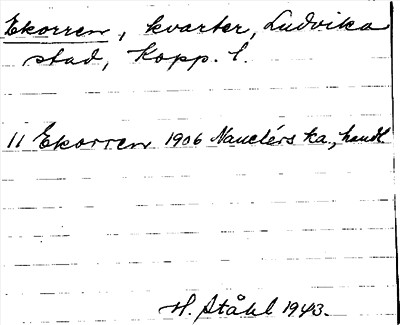 Ekorren, kvarter, Ludvika
stad, Kopp. l.
11 Ekorren 1906 Nauclérs ka., handl.
H. Ståhl 1943.